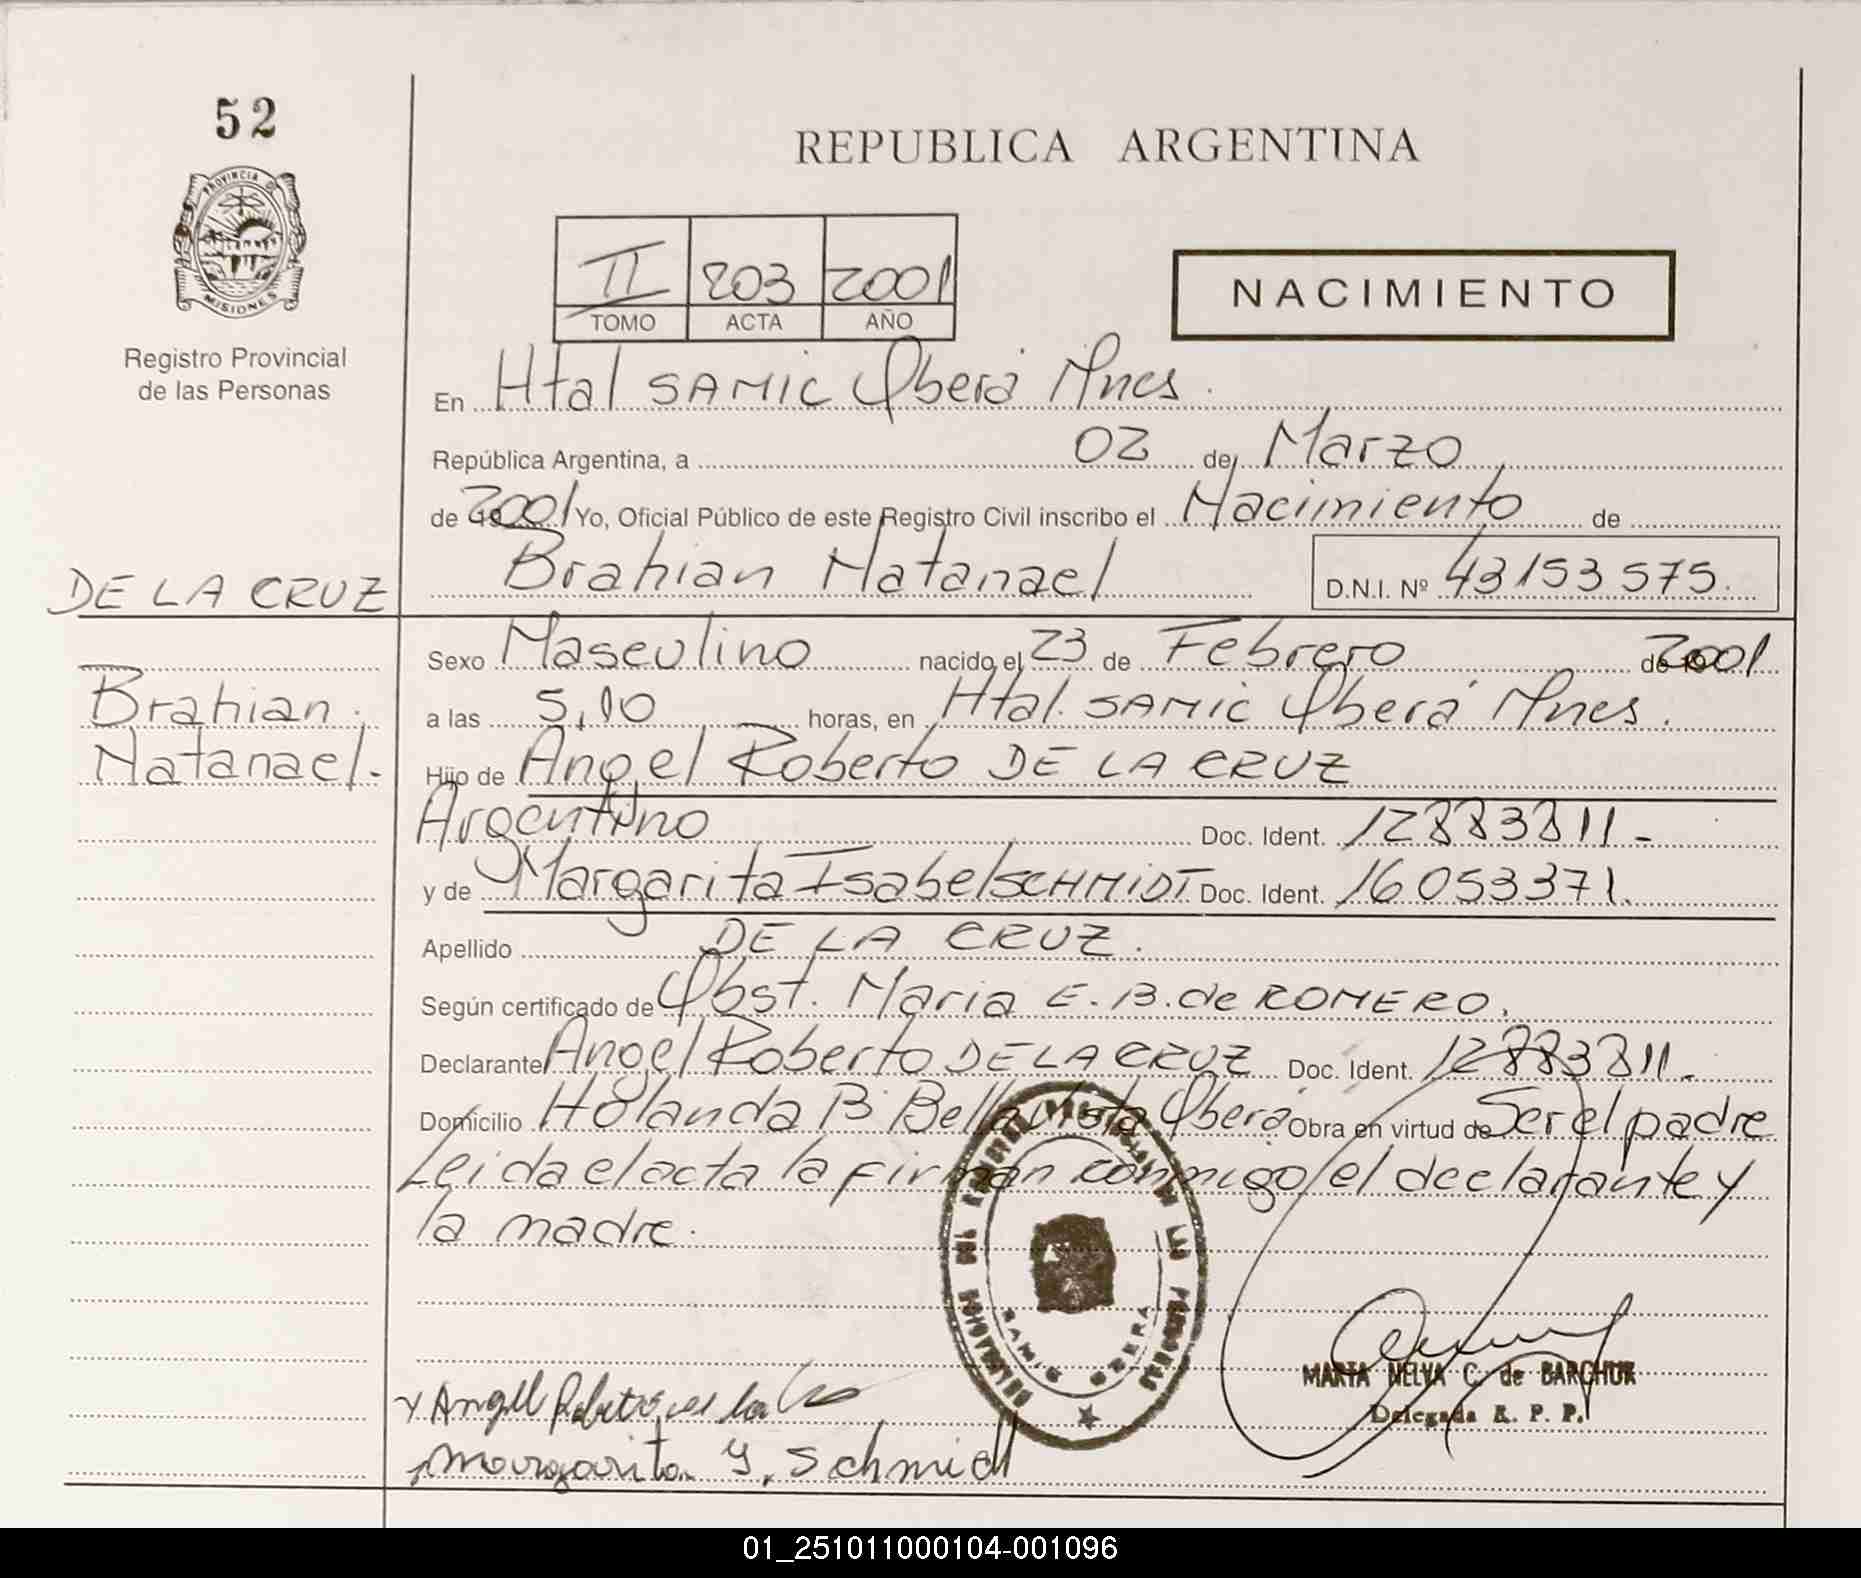 52
PROVINCIA DE
MISIONES
Registro Provincial
de las Personas
REPUBLICA ARGENTINA
II 203 2001
TOMO ACTA AÑO
NACIMIENTO
En Htal SAMIC Oberá Mnes.
República Argentina, a 02 de Marzo
de 2001 Yo, Oficial Público de este Registro Civil inscribo el Nacimiento de
Brahian Natanael D.N.I. Nº 43153575.
DE LA CRUZ
Brahian
Natanael.-
Sexo Masculino nacido el 23 de Febrero de 2001
a las 5,10 horas, en Htal. SAMIC Oberá Mnes.
Hijo de Angel Roberto DE LA CRUZ
Argentino Doc. Ident. 12883811.-
y de Margarita Isabel SCHMIDT Doc. Ident. 16053371.
Apellido DE LA CRUZ.
Según certificado de Obst. Maria E. B. de ROMERO.
Declarante Angel Roberto DE LA CRUZ Doc. Ident. 12883811.-
Domicilio Holanda B. Bella Vista Oberá Obra en virtud de Ser el padre
Leida el acta la firman conmigo el declarante y
la madre.
SAMIC OBERA
MARTA NELVA C. de BARCHUK
Delegada R. P. P.
Angel Roberto de la Cruz
Margarita Y. Schmidt
01_251011000104-001096